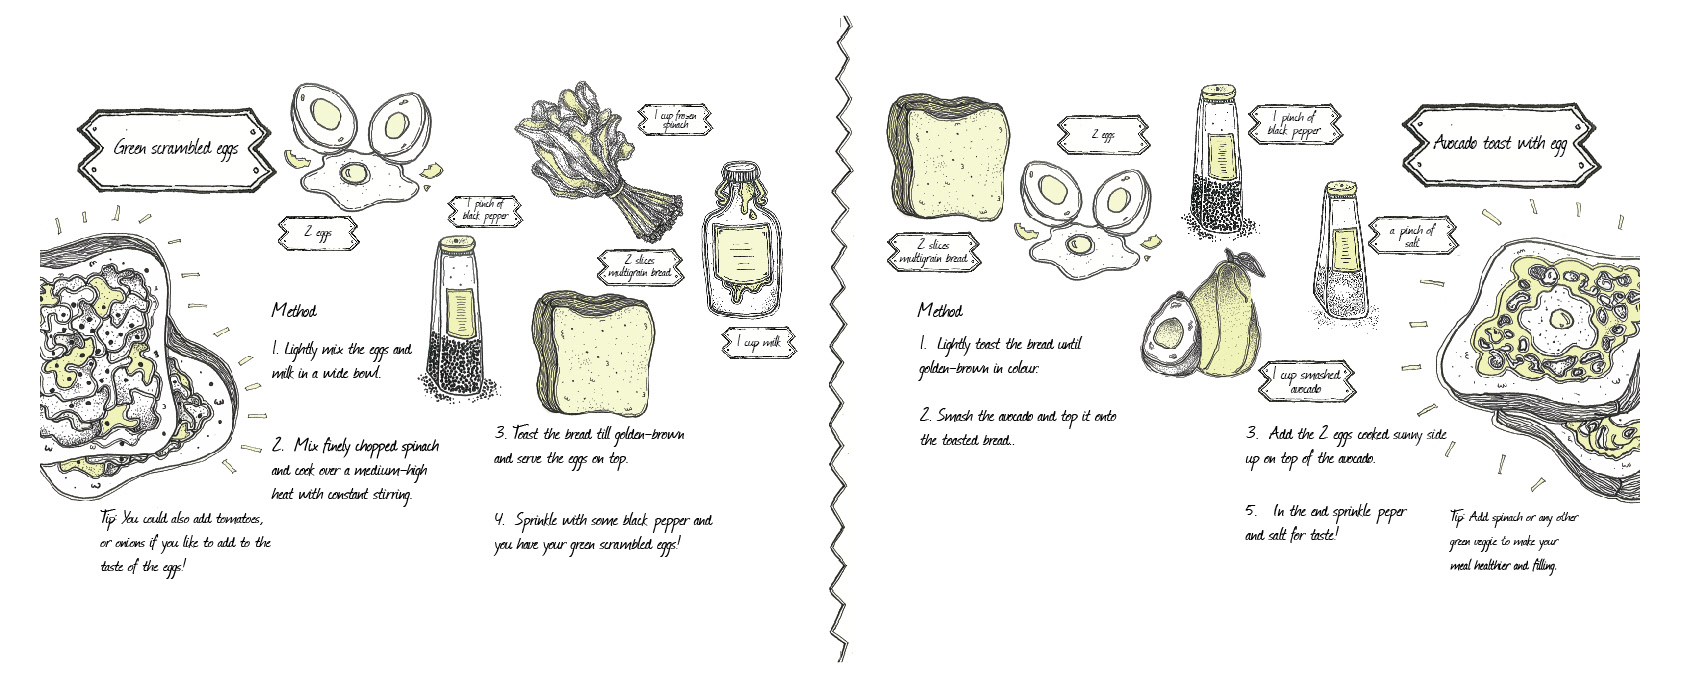 Green scrambled eggs
2 eggs
1 cup frozen
spinach
1 pinch of
black pepper
2 slices
multigrain bread
1 cup milk
Method
1. Lightly mix the eggs and
milk in a wide bowl.
2. Mix finely chopped spinach
and cook over a medium-high
heat with constant stirring.
3. Toast the bread till golden-brown
and serve the eggs on top.
4. Sprinkle with some black pepper and
you have your green scrambled eggs!
Tip: You could also add tomatoes,
or onions if you like to add to the
taste of the eggs!
Avocado toast with egg
2 slices
multigrain bread
2 eggs
1 pinch of
black pepper
a pinch of
salt
1 cup smashed
avocado
Method
1. Lightly toast the bread until
golden-brown in colour.
2. Smash the avocado and top it onto
the toasted bread..
3. Add the 2 eggs cooked sunny side
up on top of the avocado.
5. In the end sprinkle peper
and salt for taste!
Tip: Add spinach or any other
green veggie to make your
meal healthier and filling.